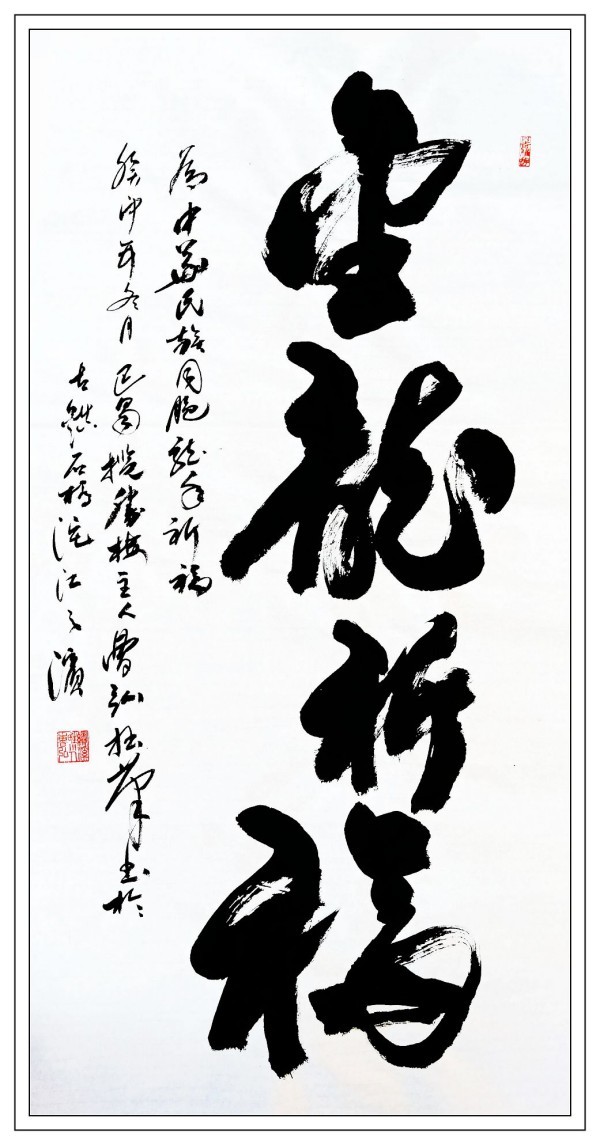 龍祈福
為中華民族同胞龍年祈福
癸卯年冬月巴蜀攬勝樓主人弘拙筆書於
古鎮石橋沱江之濱